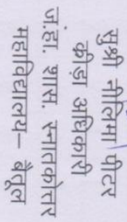 सुश्री नीलिमा पीटर
क्रीड़ा अधिकारी
जं.हा. शास. स्नातकोत्तर
महाविद्यालय– बैतूल